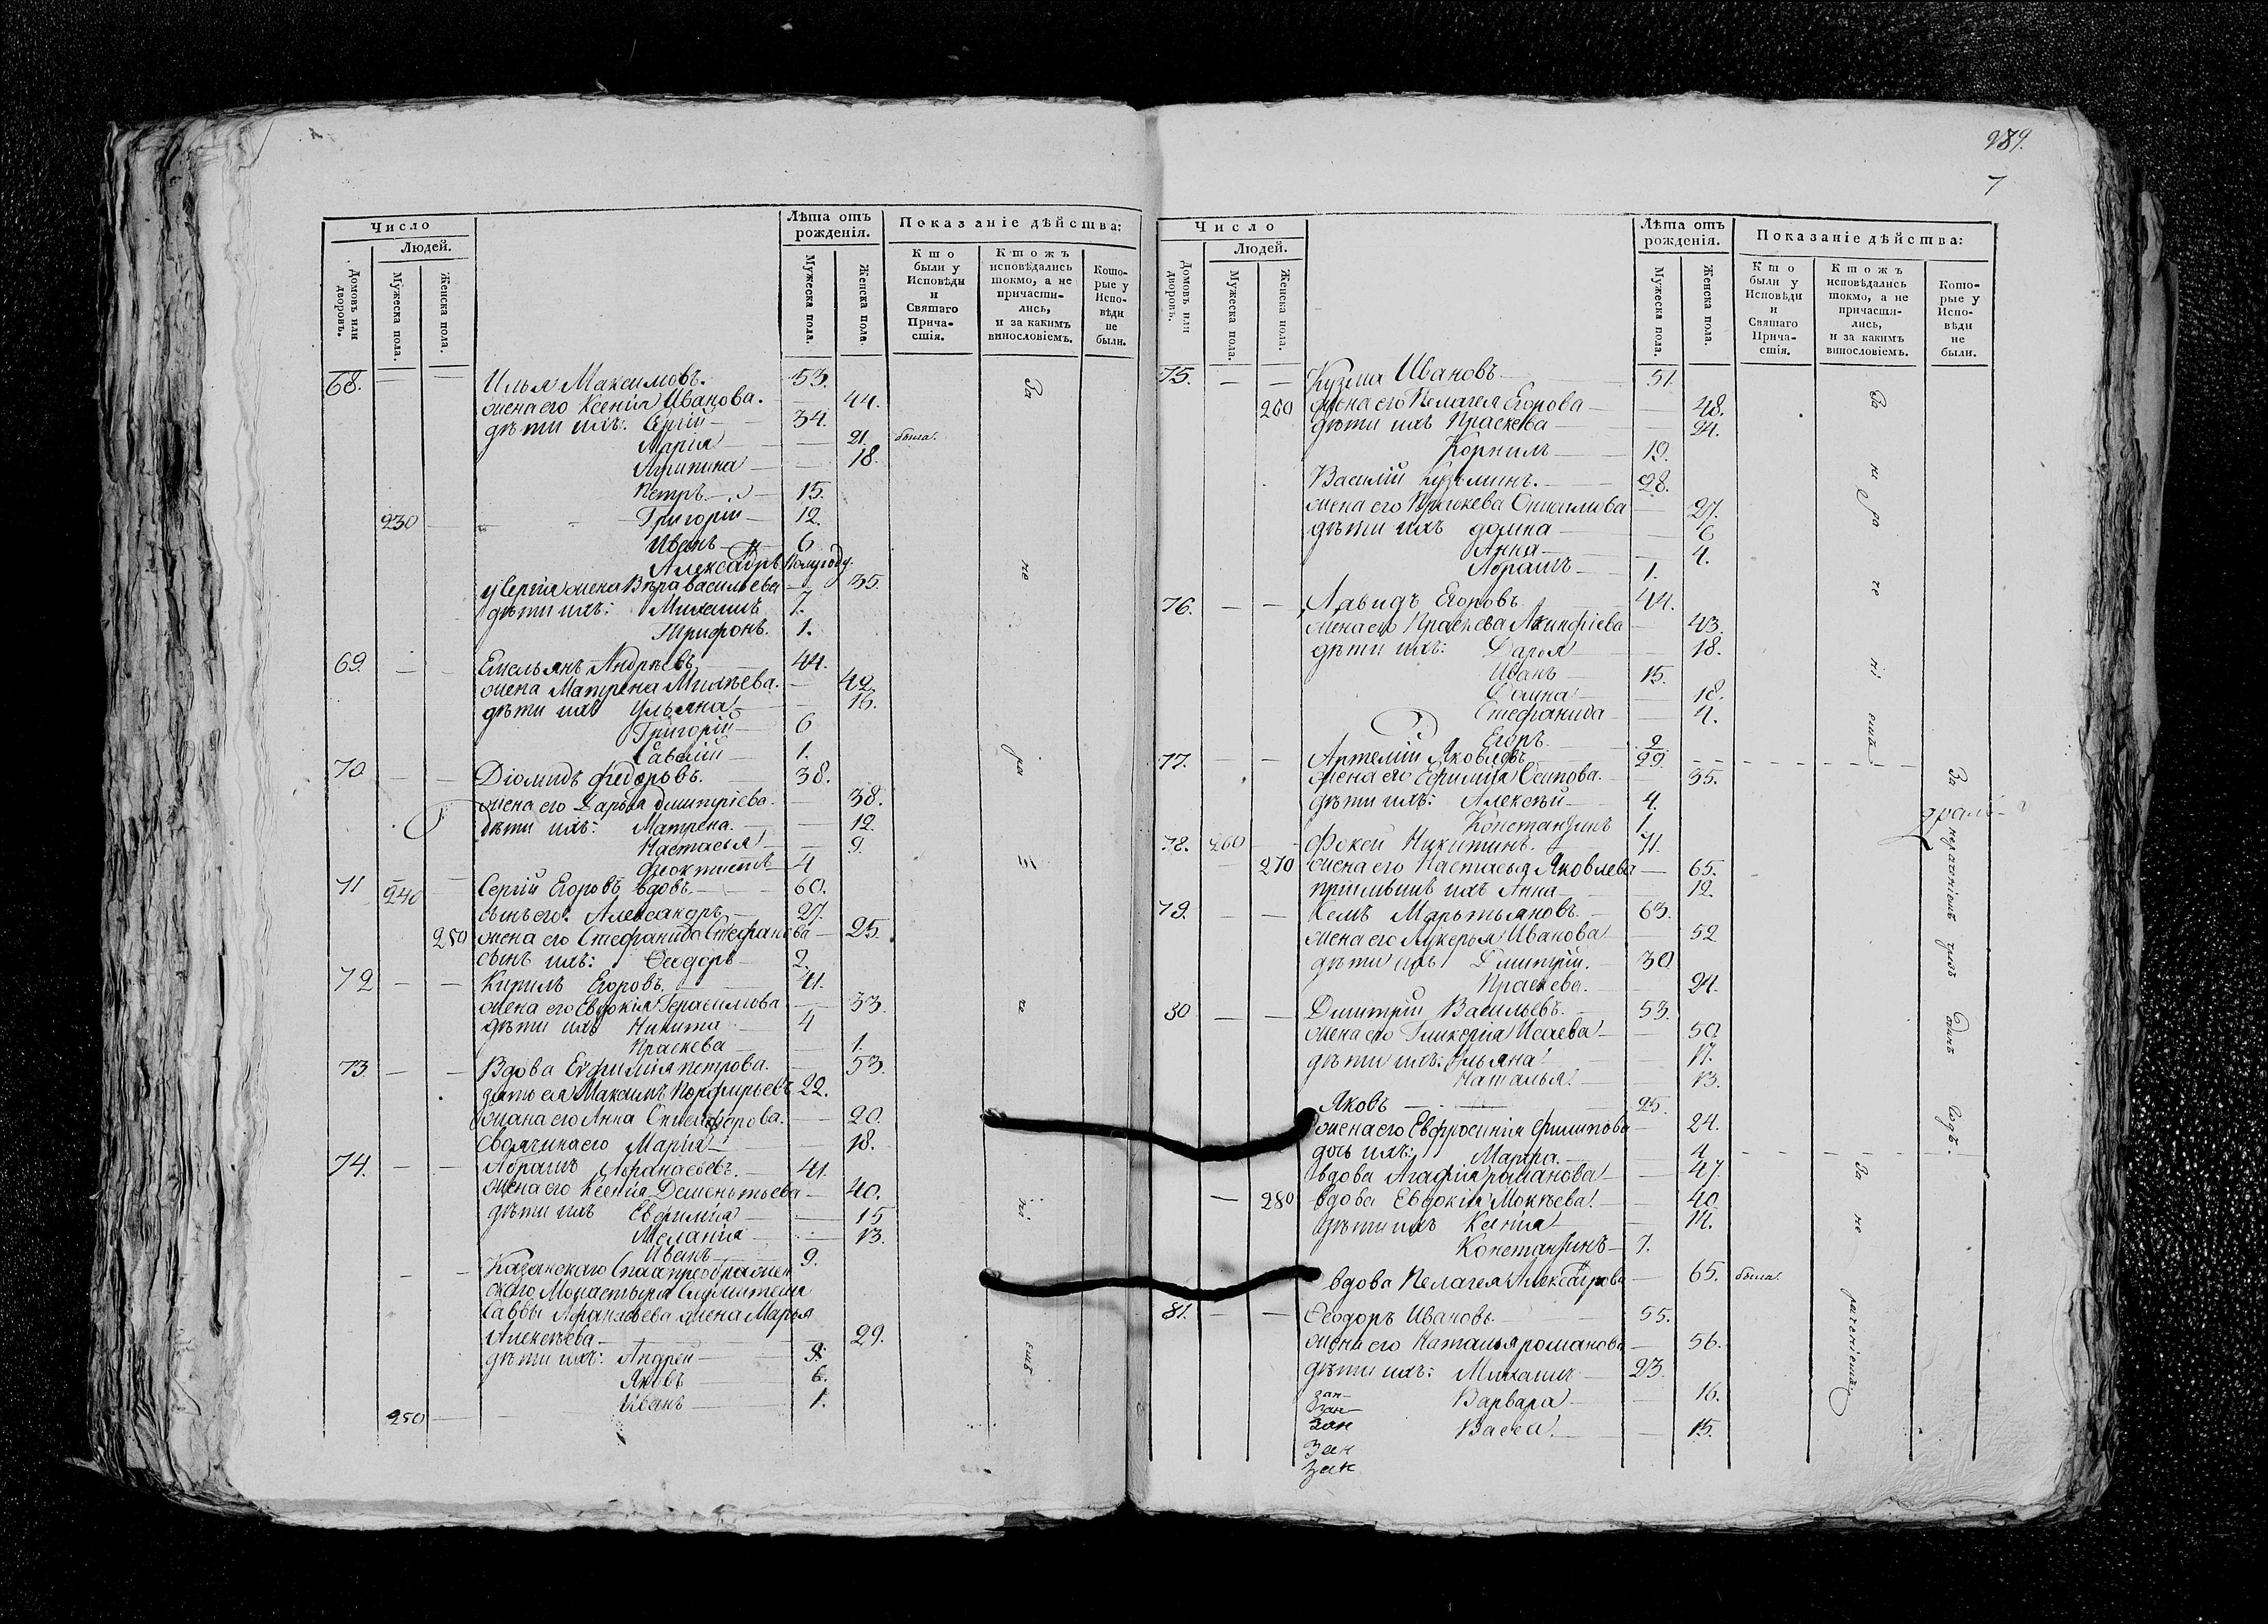 289.
7
Число
Людей.
Домовъ или дворовъ.
Мужеска пола.
Женска пола.
Лѣта отъ рожденія.
Мужеска пола.
Женска пола.
Показаніе дѣйства:
Кто были у Исповѣди и Святаго Причастія.
Ктожъ исповѣдались токмо, а не причастились, и за какимъ винословіемъ.
Которые у Исповѣди не были.
68. — — Илья Максимовъ. 53.
жена его Ксенія Иванова. — 44.
дѣти ихъ: Сергій — 34.
Марія — 21. была.
Акилина — 18.
Петръ — 15.
230 — Григорій — 12.
Иванъ — 6
Александръ Полугоду.
у Сергія жена Вѣра Васильева — 35.
дѣти ихъ: Михаилъ 7.
Трифонъ. 1.
69. — — Емельянъ Андрѣевъ 44.
жена Матрена Михѣева. — 42.
дѣти ихъ Ульяна — 16.
Григорій — 6
Савелій — 1.
70. — — Діомидъ Федоровъ. 38.
жена его Дарья Дмитріева. — 38.
дѣти ихъ: Матрена. — 12.
Настасья — 9.
Феоктистъ 4
71 240 — Сергій Егоровъ вдовъ — 60.
сынъ его: Александръ — 27.
250 жена его Стефанида Стефанова — 25
сынъ ихъ: Ѳеодоръ — 2.
72 — — Кирилъ Егоровъ. 41.
жена его Евдокія Герасимова — 33.
дѣти ихъ Никита — 4
Праскева — 1.
73 — — Вдова Евфимія Петрова. 53.
зять ея Максимъ Порфирьевъ 22.
жена его Анна — 20.
своячина его Марія — 18.
74. — — Абрамъ Афанасьевъ. — 41.
жена его Ксенія Дементьева — 40.
дѣти ихъ Евфимія — 15
Меланія — 13.
Иванъ — 9.
— — Казанскаго Спасопреображен
скаго Монастыря Служителя
Саввы Афанасьева жена Марья
Алексѣева — 29.
дѣти ихъ: Андрей — 8.
Яковъ — 6.
Иванъ — 1.
250
За не ра че ні емъ
Число
Людей.
Домовъ или дворовъ.
Мужеска пола.
Женска пола.
Лѣта отъ рожденія.
Мужеска пола.
Женска пола.
Показаніе дѣйства:
Кто были у Исповѣди и Святаго Причастія.
Ктожъ исповѣдались токмо, а не причастились, и за какимъ винословіемъ.
Которые у Исповѣди не были.
75. — — Кузма Ивановъ — 51.
260 жена его Пелагея Егорова — 48.
дѣти ихъ Праскева — 24.
Корнилъ — 19.
Василій Кузьминъ. — 28.
жена его Праскева Онисимова — 27.
дѣти ихъ Домна — 6
Анна — 4.
Абрамъ — 1.
76. — — Давидъ Егоровъ 44.
жена его Праскева Акинфіева — 43.
дѣти ихъ: Дарья — 18.
Иванъ — 15.
Домна — 12.
Стефанида — 4.
Егоръ. 2
77. — — Артемій Яковлевъ 29.
жена его Ефимія Осипова. 35.
дѣти ихъ: Алексѣй — 4.
Константинъ 1.
78. 260 — Фокей Никитинъ. 71.
270 жена его Настасья Яковлева — 65.
пріемышъ ихъ Анна — 12.
79. — — Мартьяновъ. — 63.
жена его Лукерья Иванова — 52
дѣти ихъ Дмитрій. — 30
Праскева. — 24.
80 — — Дмитрій Васильевъ. — 53.
жена его Гликерія Исаева — 50.
дѣти ихъ: Ульяна — 17.
Наталья — 13.
Яковъ — 25.
жена его Евфросинія Филипова — 24.
дочь ихъ: Марѳа. — 4
вдова Агафія Романова — 47.
— 280 вдова Евдокія Мокѣева. — 40.
дѣти ихъ Ксенія — 14.
Константинъ — 7.
вдова Пелагея Александрова — 65. была.
81. — — Ѳеодоръ Ивановъ — 55.
жена его Наталья Романова — 56.
дѣти ихъ: Михаилъ — 23.
Варвара — 16.
Васса — 15.
зан
зан
зан
зан
зан
За не ра че ні емъ
За нераченіемъ Одинъ годъ.
За не раченіемъ